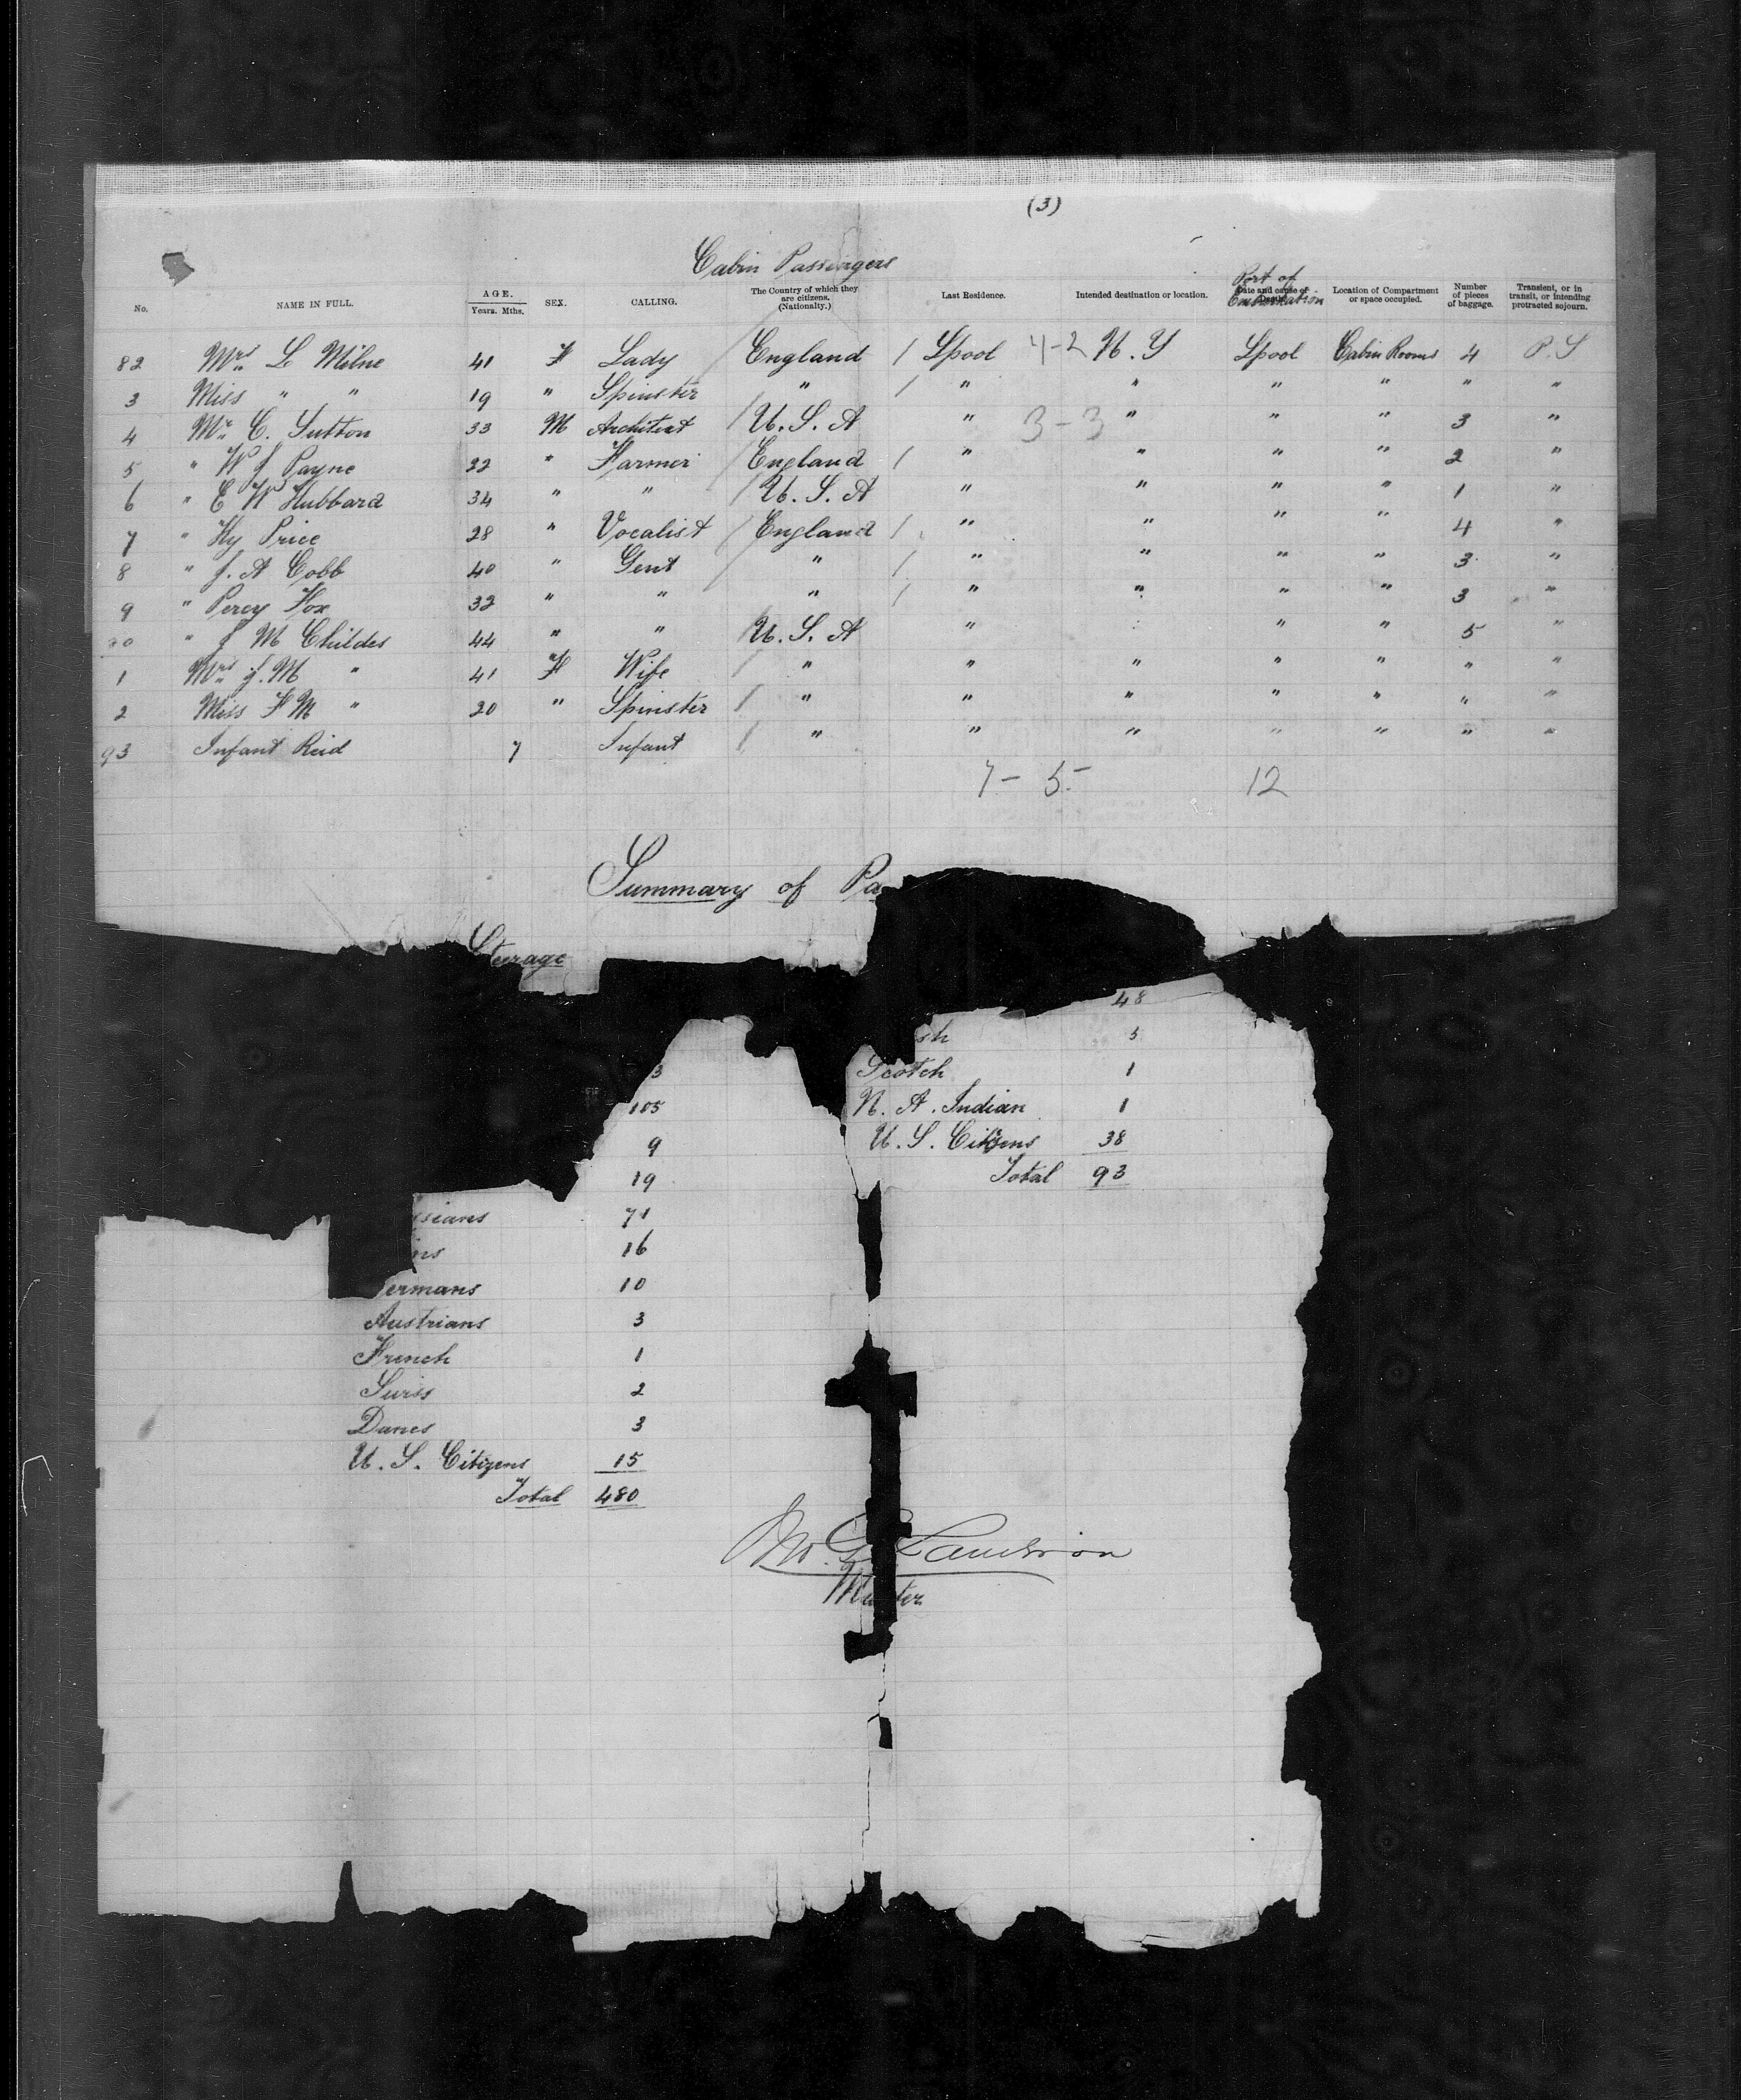 (3)
Cabin Passengers
No. NAME IN FULL. AGE. Years. Mths. SEX. CALLING. The Country of which they are citizens. (Nationalty.) Last Residence. Intended destination or location. Port of Embarkation Date and cause of Location of Compartment or space occupied. Number of pieces of baggage. Transient, or in transit, or intending protracted sojourn.
82 Mrs L Milne 41 F Lady / England / Lpool 4-2 N.Y Lpool Cabin Rooms 4 P.S
3 Miss " " 19 " Spinster / " / " " " " " "
4 Mr C. Sutton 33 M Architect / U.S.A " 3-3 " " " 3 "
5 " W J Payne 22 " Farmer / England / " " " " 2 "
6 " E W Hubbard 34 " " / U.S.A " " " " 1 "
7 " Hy Price 28 " Vocalist / England / " " " " 4 "
8 " J. A Cobb 40 " Gent / " / " " " " 3 "
9 " Percy Fox 32 " " " / " " " " 3 "
90 " J M Childes 44 " " / U.S.A " " " 5 "
1 Mrs J. M " 41 F Wife / " " " " " " "
2 Miss F M " 20 " Spinster / " " " " " " "
93 Infant Reid 7 Infant / " " " " " " "
7 - 5 - 12
Summary of Pa
Steerage
48
sh 5
3 Scotch 1
105 N. A. Indian 1
9 U. S. Citizens 38
19 Total 93
sians 71
ns 16
ermans 10
Austrians 3
French 1
Swiss 2
Danes 3
U. S. Citizens 15
Total 480
Master